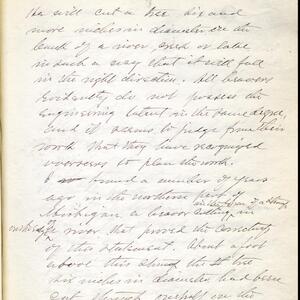 He will cut a tree six and
more inches in diameter on the
bank of a river, creek or lake
in such a way that it will fall
in the right direction. All beavers
evidently do not possess the
engineering talent in the same degree,
and it seems to judge from their
work that they have recognized
overseers to plan the work.
I found a number of years
ago in the northern part of
Michigan, a beaver cutting, in
river that proved the correctness
of this statement. About a foot
above this the tree
six inches in diameter had been
cut through on the